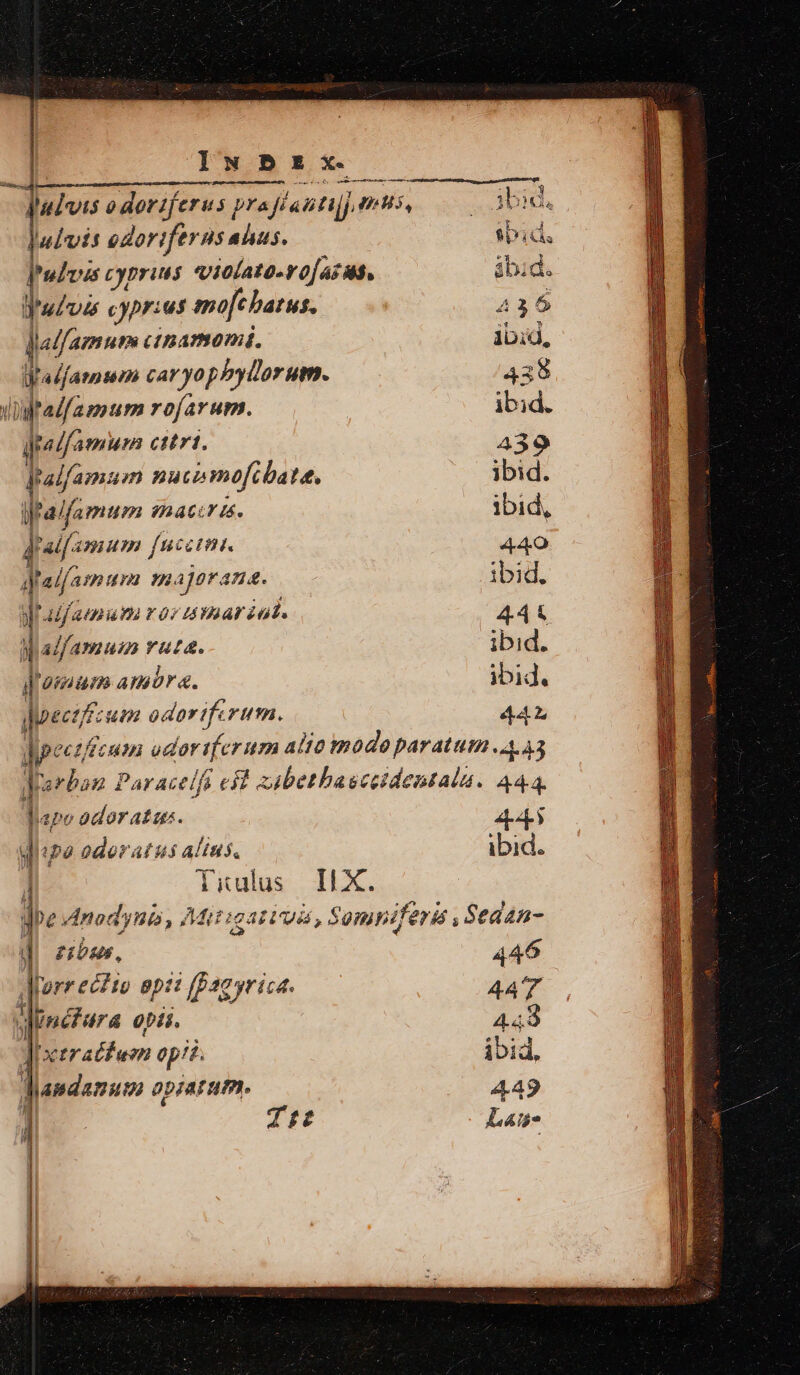 INDEX.
Pulvis odoriferus præstantiss. mus, ibid.
Pulvis odoriferus alius. ibid.
Pulvis cyprius violato-rosaceus. ibid.
Pulvis cyprius moschatus. 436
Balsamum cinamomi. ibid,
Balsamum caryophyllorum. 438
Balsamum rosarum. ibid.
Balsamum citri. 439
Balsamum nucismoschatæ. ibid.
Balsamum maceris. ibid,
Balsamum succini. 440
Balsamum majoranæ. ibid.
Balsamum rorismarini. 441
Balsamum rutæ. ibid.
Pomum ambræ. ibid.
Specificum odoriferum. 442
Specificum odoriferum alio modo paratum. 443
Carbon Paracelsi est zibethaoccidentalis. 444
Sapo odoratus. 445
Sapo odoratus alius. ibid.
Titulus IIX.
De Anodynis, Mitigativis, Somniferis, Sedan-
tibus, 446
Correctio opii spagyrica. 447
Tinctura opii. 448
Extractum opii. ibid,
Laudanum opiatum. 449
Ttt Lau-